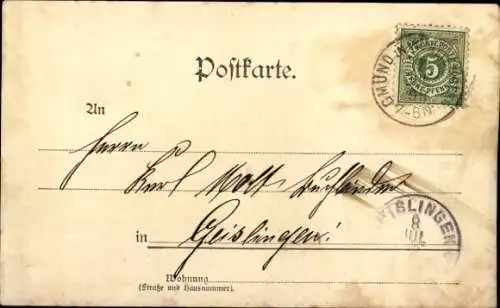 Postkarte.
GMÜND
5
7-8 N
An
Herrn
Karl Mast Buchbinder
in Geislingen!
GEISLINGEN
8
JUL
Wohnung
(Straße und Hausnummer).